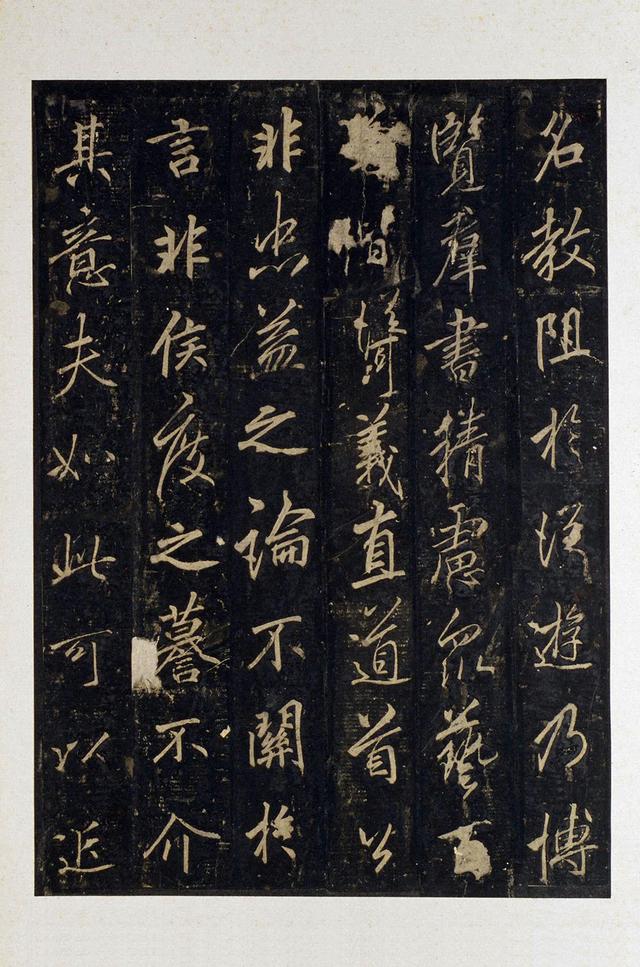 名教阻於從遊乃博
覽羣書精慮眾藝百
偕義直道首公
非忠益之論不關於
言非侯度之謩不介
其意夫如此可以近